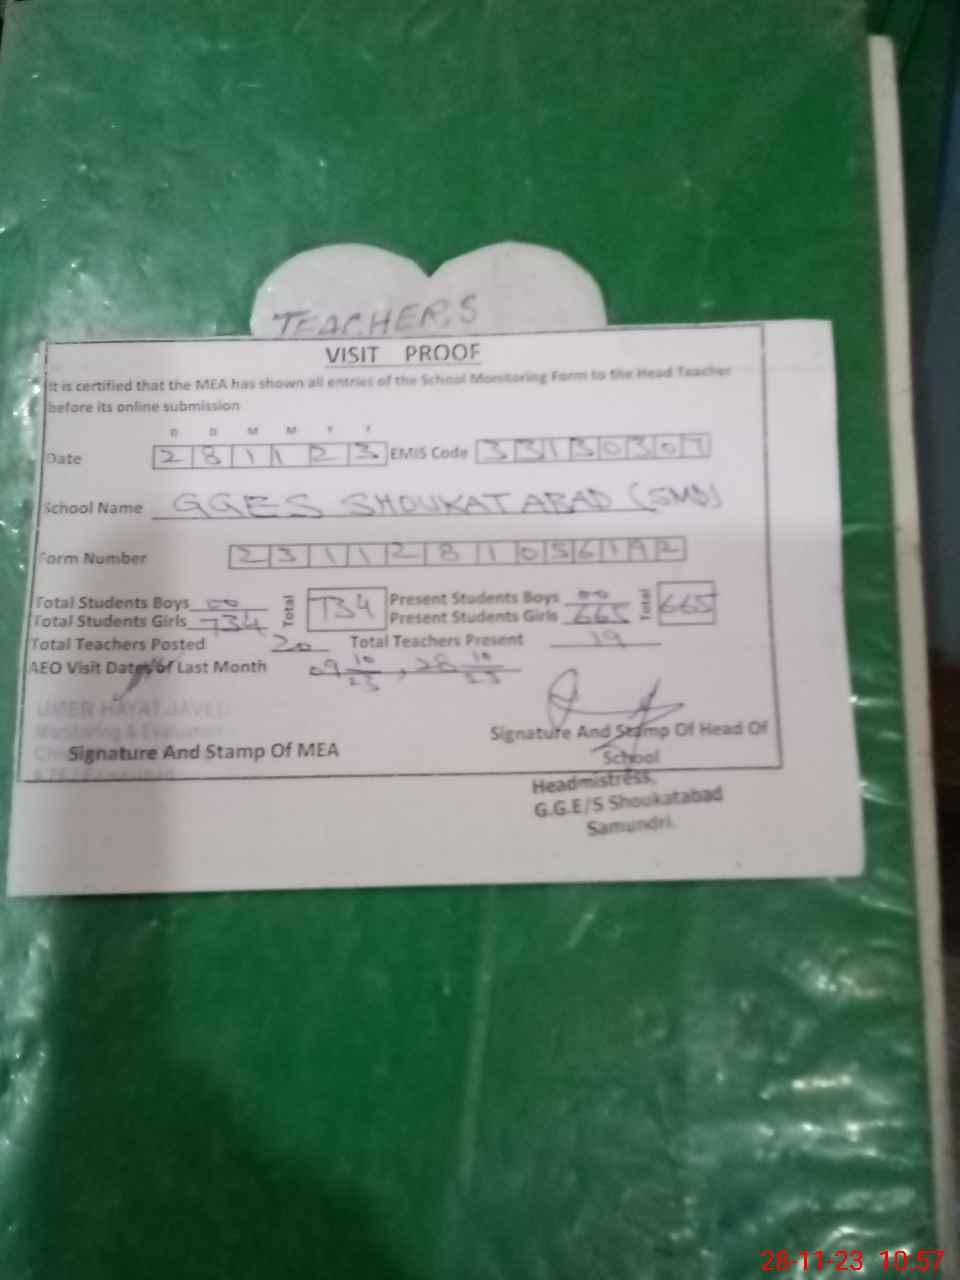 TEACHER,S
VISIT PROOF
It is certified that the MEA has shown all entries of the School Monitoring Form to the Head Teacher
before its online submission
D D M M Y Y
Date 2 8 1 1 2 3 EMIS Code 3 3 1 3 0 3 0 7
School Name GGES SHOUKAT ABAD (SMD)
Form Number 2 3 1 1 2 8 1 0 5 6 1 9 2
Total Students Boys 00 Total 734 Present Students Boys 00 Total 665
Total Students Girls 734 Present Students Girls 665
Total Teachers Posted 20 Total Teachers Present 19
AEO Visit Dates of Last Month 09 10/23, 28 10/23
UMER HAYAT JAVED
Monitoring & Evaluation
Signature And Stamp Of MEA
Signature And Stamp Of Head Of
School
Headmistress,
G.G.E/S Shoukatabad
Samundri.
28-11-23 10:57